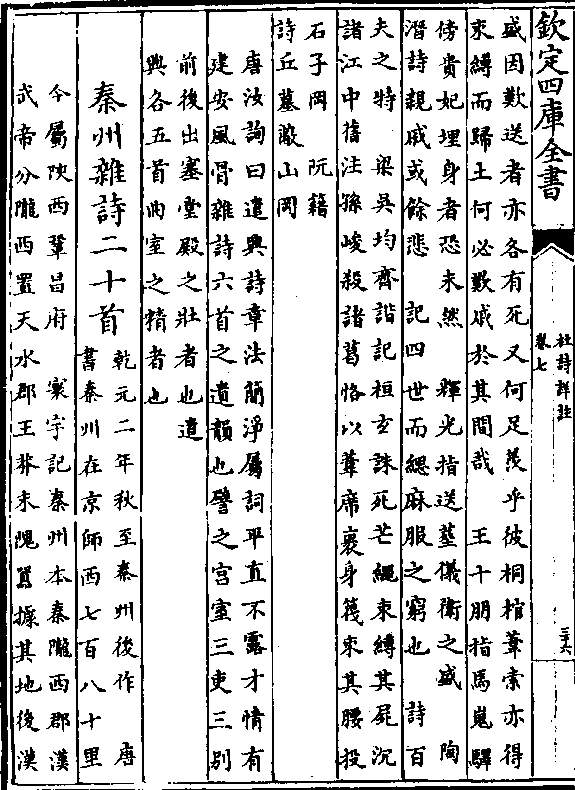 欽定四庫全書
杜詩詳註
卷七
三十六
盛因歎送者亦各有死又何足羨乎彼桐棺葦索亦得
束縛而歸土何必歎戚於其間哉　王十朋指馬嵬驛
傍貴妃埋身者恐未然　輝光指送墓儀衛之盛　陶
潛詩親戚或餘悲　記四世而緦麻服之窮也　詩百
夫之特　梁吳均齊諧記桓玄誅死芒繩束縛其屍沉
諸江中舊注孫峻殺諸葛恪以葦席裹身篾束其腰投
石子岡　阮籍
詩丘墓蔽山岡
唐汝詢曰遣興詩章法簡淨屬詞平直不露才情有
建安風骨雜詩六首之遺韻也譬之宮室三吏三別
前後出塞堂殿之壯者也遣
興各五首曲室之精者也
秦州雜詩二十首
乾元二年秋至秦州後作　唐
書秦州在京師西七百八十里
今屬陝西鞏昌府　寰宇記秦州本秦隴西郡漢
武帝分隴西置天水郡王莽末隗囂據其地後漢